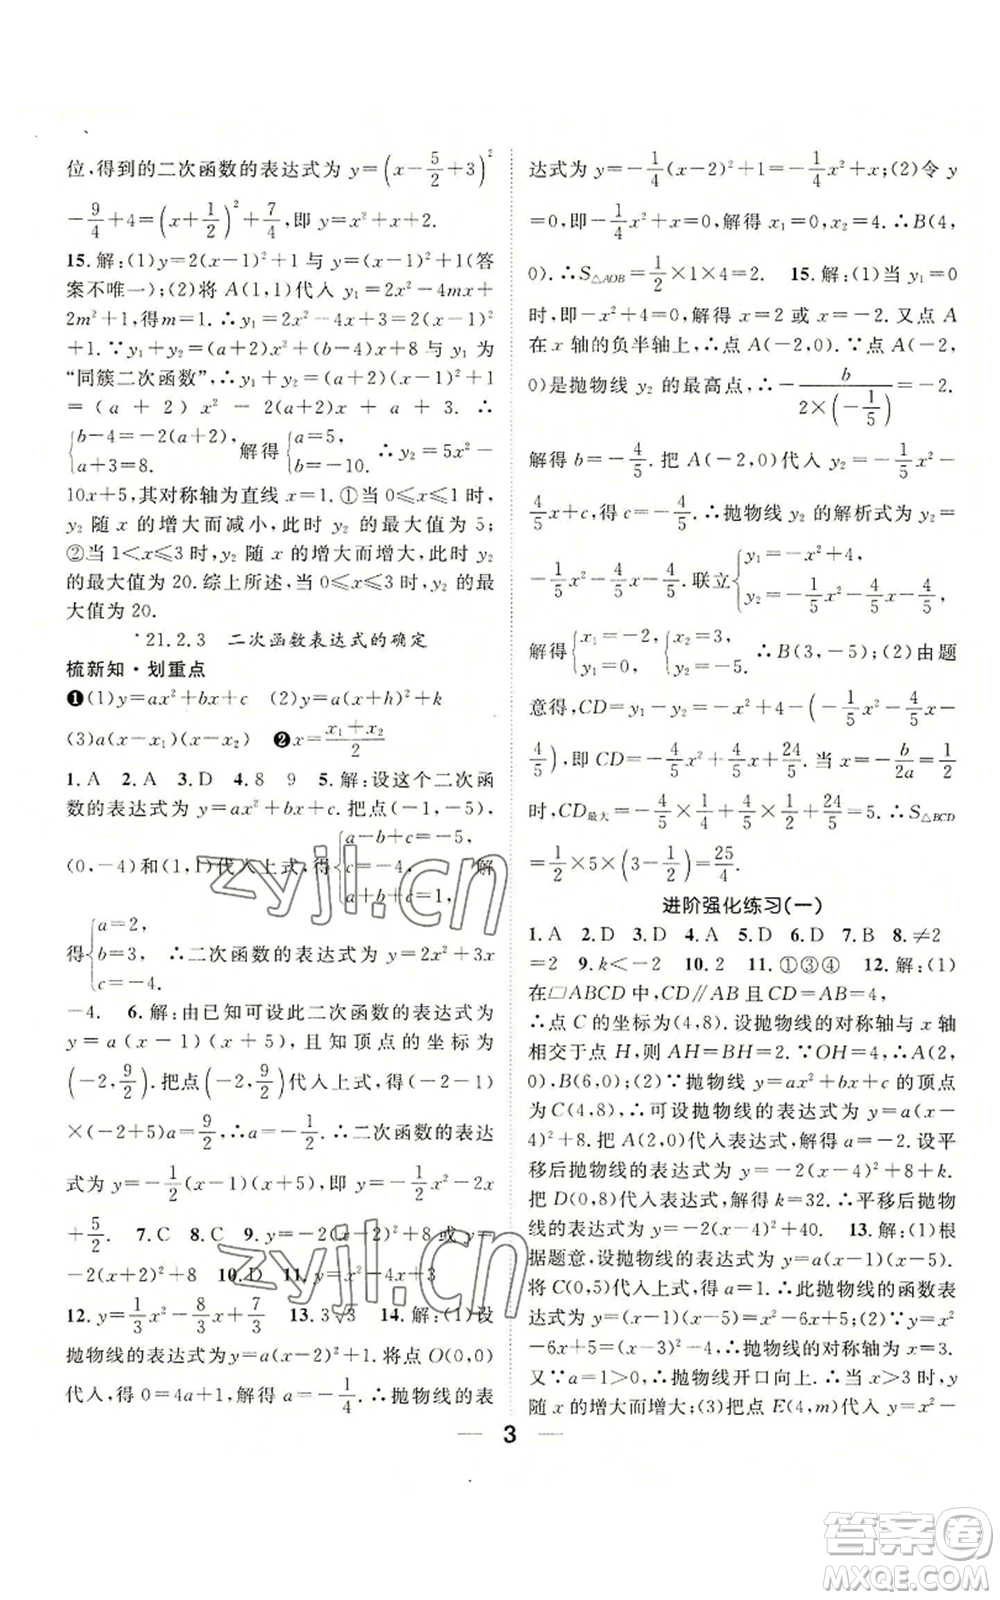 位,得到的二次函数的表达式为 y=(x-5/2+3)²
-9/4+4=(x+1/2)²+7/4,即 y=x²+x+2.
15.解:(1)y=2(x-1)²+1与y=(x-1)²+1(答
案不唯一);(2)将 A(1,1)代入 y₁=2x²-4mx+
2m²+1,得m=1.∴y₁=2x²-4x+3=2(x-1)²
+1.∵y₁+y₂=(a+2)x²+(b-4)x+8与 y₁ 为
“同簇二次函数”,∴y₁+y₂=(a+2)(x-1)²+1
=(a+2)x²-2(a+2)x+a+3.∴
{b-4=-2(a+2), a+3=8. 解得{a=5, b=-10. ∴y₂=5x²-
10x+5,其对称轴为直线 x=1.①当 0≤x≤1 时,
y₂ 随 x 的增大而减小,此时 y₂ 的最大值为 5;
②当 1<x≤3 时,y₂ 随 x 的增大而增大,此时 y₂
的最大值为 20.综上所述,当 0≤x≤3 时,y₂ 的最
大值为 20.
21.2.3 二次函数表达式的确定
梳新知·划重点
❶(1)y=ax²+bx+c (2)y=a(x+h)²+k
(3)a(x-x₁)(x-x₂) ❷x=(x₁+x₂)/2
1.A 2.A 3.D 4.8 9 5.解:设这个二次函
数的表达式为 y=ax²+bx+c.把点(-1,-5),
(0,-4)和(1,1)代入上式,得{a-b+c=-5, c=-4, a+b+c=1, 解
得{a=2, b=3, c=-4. ∴二次函数的表达式为 y=2x²+3x
-4. 6.解:由已知可设此二次函数的表达式为
y=a(x-1)(x+5),且知顶点的坐标为
(-2,9/2).把点(-2,9/2)代入上式,得(-2-1)
×(-2+5)a=9/2,∴a=-1/2.∴二次函数的表达
式为 y=-1/2(x-1)(x+5),即 y=-1/2x²-2x
+5/2. 7.C 8.C 9.y=-2(x-2)²+8 或 y=
-2(x+2)²+8 10.D 11.y=x²-4x+3
12.y=1/3x²-8/3x+7/3 13.3√3 14.解:(1)设
抛物线的表达式为 y=a(x-2)²+1.将点 O(0,0)
代入,得 0=4a+1,解得 a=-1/4.∴抛物线的表
达式为 y=-1/4(x-2)²+1=-1/4x²+x;(2)令 y
=0,即-1/4x²+x=0,解得 x₁=0,x₂=4.∴B(4,
0).∴S△AOB=1/2×1×4=2. 15.解:(1)当 y₁=0
时,即-x²+4=0,解得 x=2 或 x=-2.又点 A
在 x 轴的负半轴上,∴点 A(-2,0).∵点 A(-2,
0)是抛物线 y₂ 的最高点,∴-b/(2×(-1/5))=-2.
解得 b=-4/5.把 A(-2,0)代入 y₂=-1/5x²-
4/5x+c,得 c=-4/5.∴抛物线 y₂ 的解析式为 y₂=
-1/5x²-4/5x-4/5.联立{y₁=-x²+4, y₂=-1/5x²-4/5x-4/5,
解得{x₁=3, y₁=-5, {x₂=-2, y₂=0. ∴B(3,-5);(2)由题
意得,CD=y₁-y₂=-x²+4-(-1/5x²-4/5x-
4/5),即 CD=-4/5x²+4/5x+24/5.当 x=-b/2a=1/2
时,CD最大=-4/5×1/4+4/5×1/2+24/5=5.∴S△BCD
=1/2×5×(3-1/2)=25/4.
进阶强化练习(一)
1.A 2.D 3.D 4.A 5.D 6.D 7.B 8.≠2
=2 9.k<-2 10.2 11.①③④ 12.解:(1)
在▱ABCD 中,CD∥AB 且 CD=AB=4,
∴点 C 的坐标为(4,8).设抛物线的对称轴与 x 轴
相交于点 H,则 AH=BH=2.∵OH=4,∴A(2,
0),B(6,0);(2)∵抛物线 y=ax²+bx+c 的顶点
为 C(4,8),∴可设抛物线的表达式为 y=a(x-
4)²+8.把 A(2,0)代入表达式,解得 a=-2.设平
移后抛物线的表达式为 y=-2(x-4)²+8+k.
把 D(0,8)代入表达式,解得 k=32.∴平移后抛物
线的表达式为 y=-2(x-4)²+40. 13.解:(1)根
据题意,设抛物线的表达式为 y=a(x-1)(x-5).
将 C(0,5)代入上式,得 a=1.∴此抛物线的函数表
达式为 y=(x-1)(x-5)=x²-6x+5;(2)∵y=
x²-6x+5=(x-3)²-4,∴抛物线的对称轴为 x=3.
又∵a=1>0,∴抛物线开口向上.∴当 x>3 时,y
随 x 的增大而增大;(3)把点 E(4,m)代入 y=x²-
3
zyjl.cn
zyjl.cn
答案圈
MXQE.COM